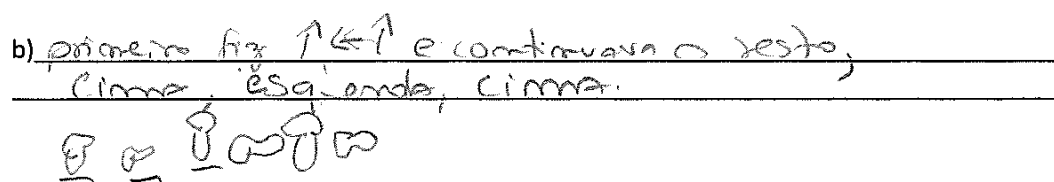 b) primeiro fiz ↑ ← ↑ e continuava o resto,
cima, esquerda, cima.